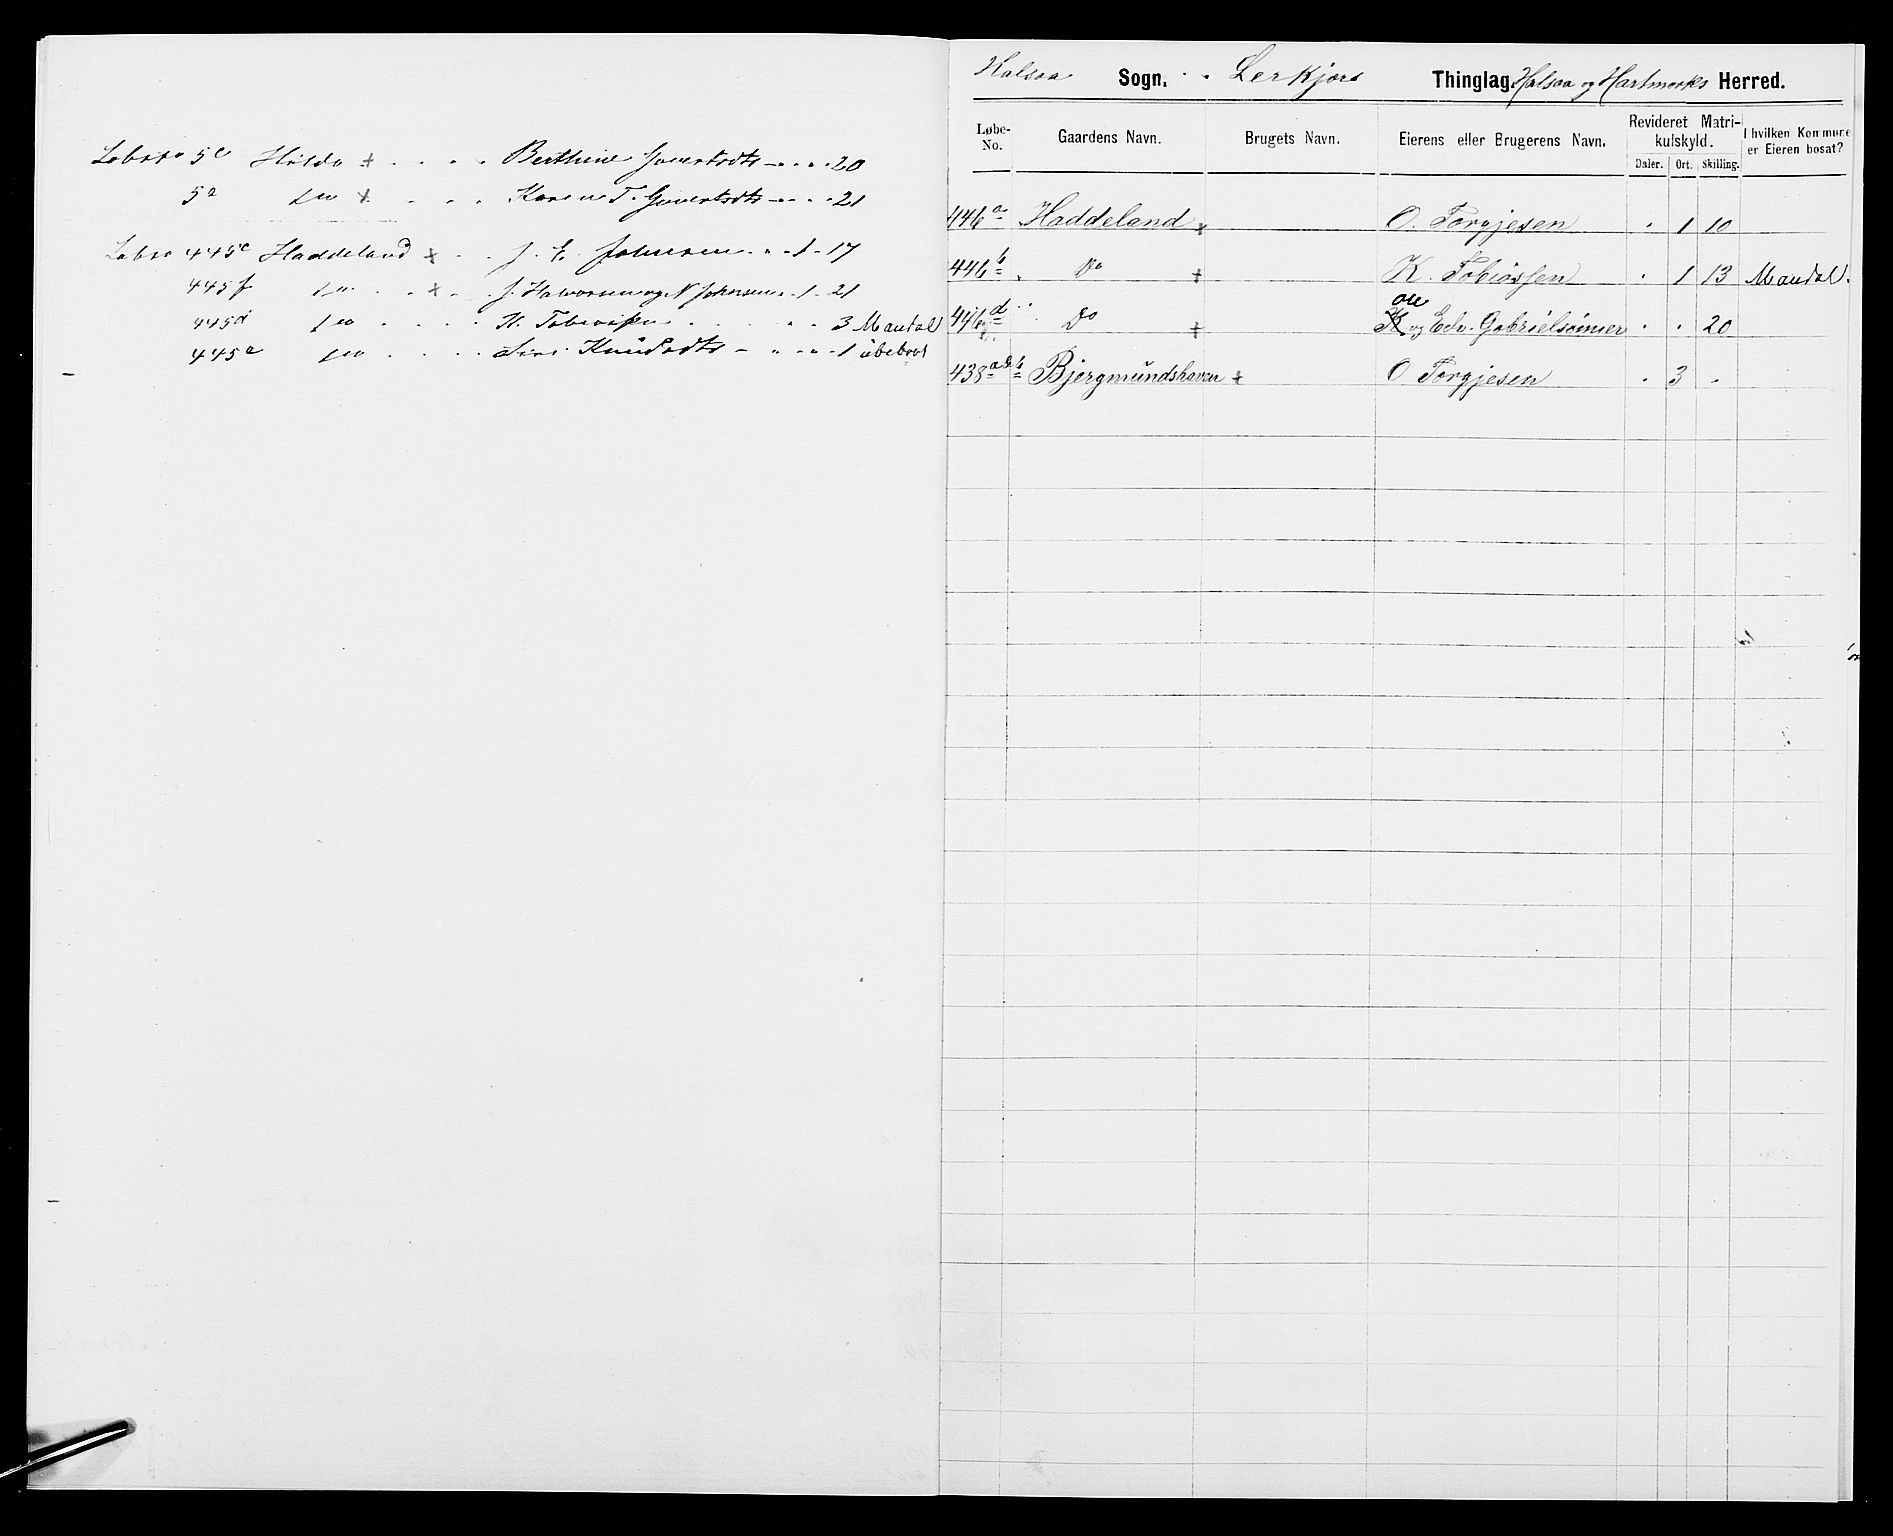 Løbno 5c Hilde + . . . . Berthine Gjeruldsdtr - . . . 20
5a do + . . . Karen T. Gjeruldsdtr - . . . 21
Løbno 445c Haddeland + . . . J. E. Johnsen . " . 1 - 17
445f do . . + . . J. Halvorsen og N Johnsen . . 1 - 21
445d do . . . . . K. Tobiassen . . . . . 3 Mandal
445e do . . . . Siri Knudsdtr - . . . - 1 ubeboet
Halsaa Sogn. Lerkjærs Thinglag Halsaa og Hartmarks Herred.
Løbe-No. Gaardens Navn. Brugets Navn. Eierens eller Brugerens Navn. Revideret Matri-kulskyld. I hvilken Kommune er Eieren bosat?
Daler. Ort. Skilling.
446a Haddeland + O. Torgjesen . 1 10
446b . Do + K. Tobiassen . 1 13 Mandal.
446d Do + Ole og Edv. Gabrielsønner . . 20
438a&b Bjergmundshaven + O Torgjesen . 3 .